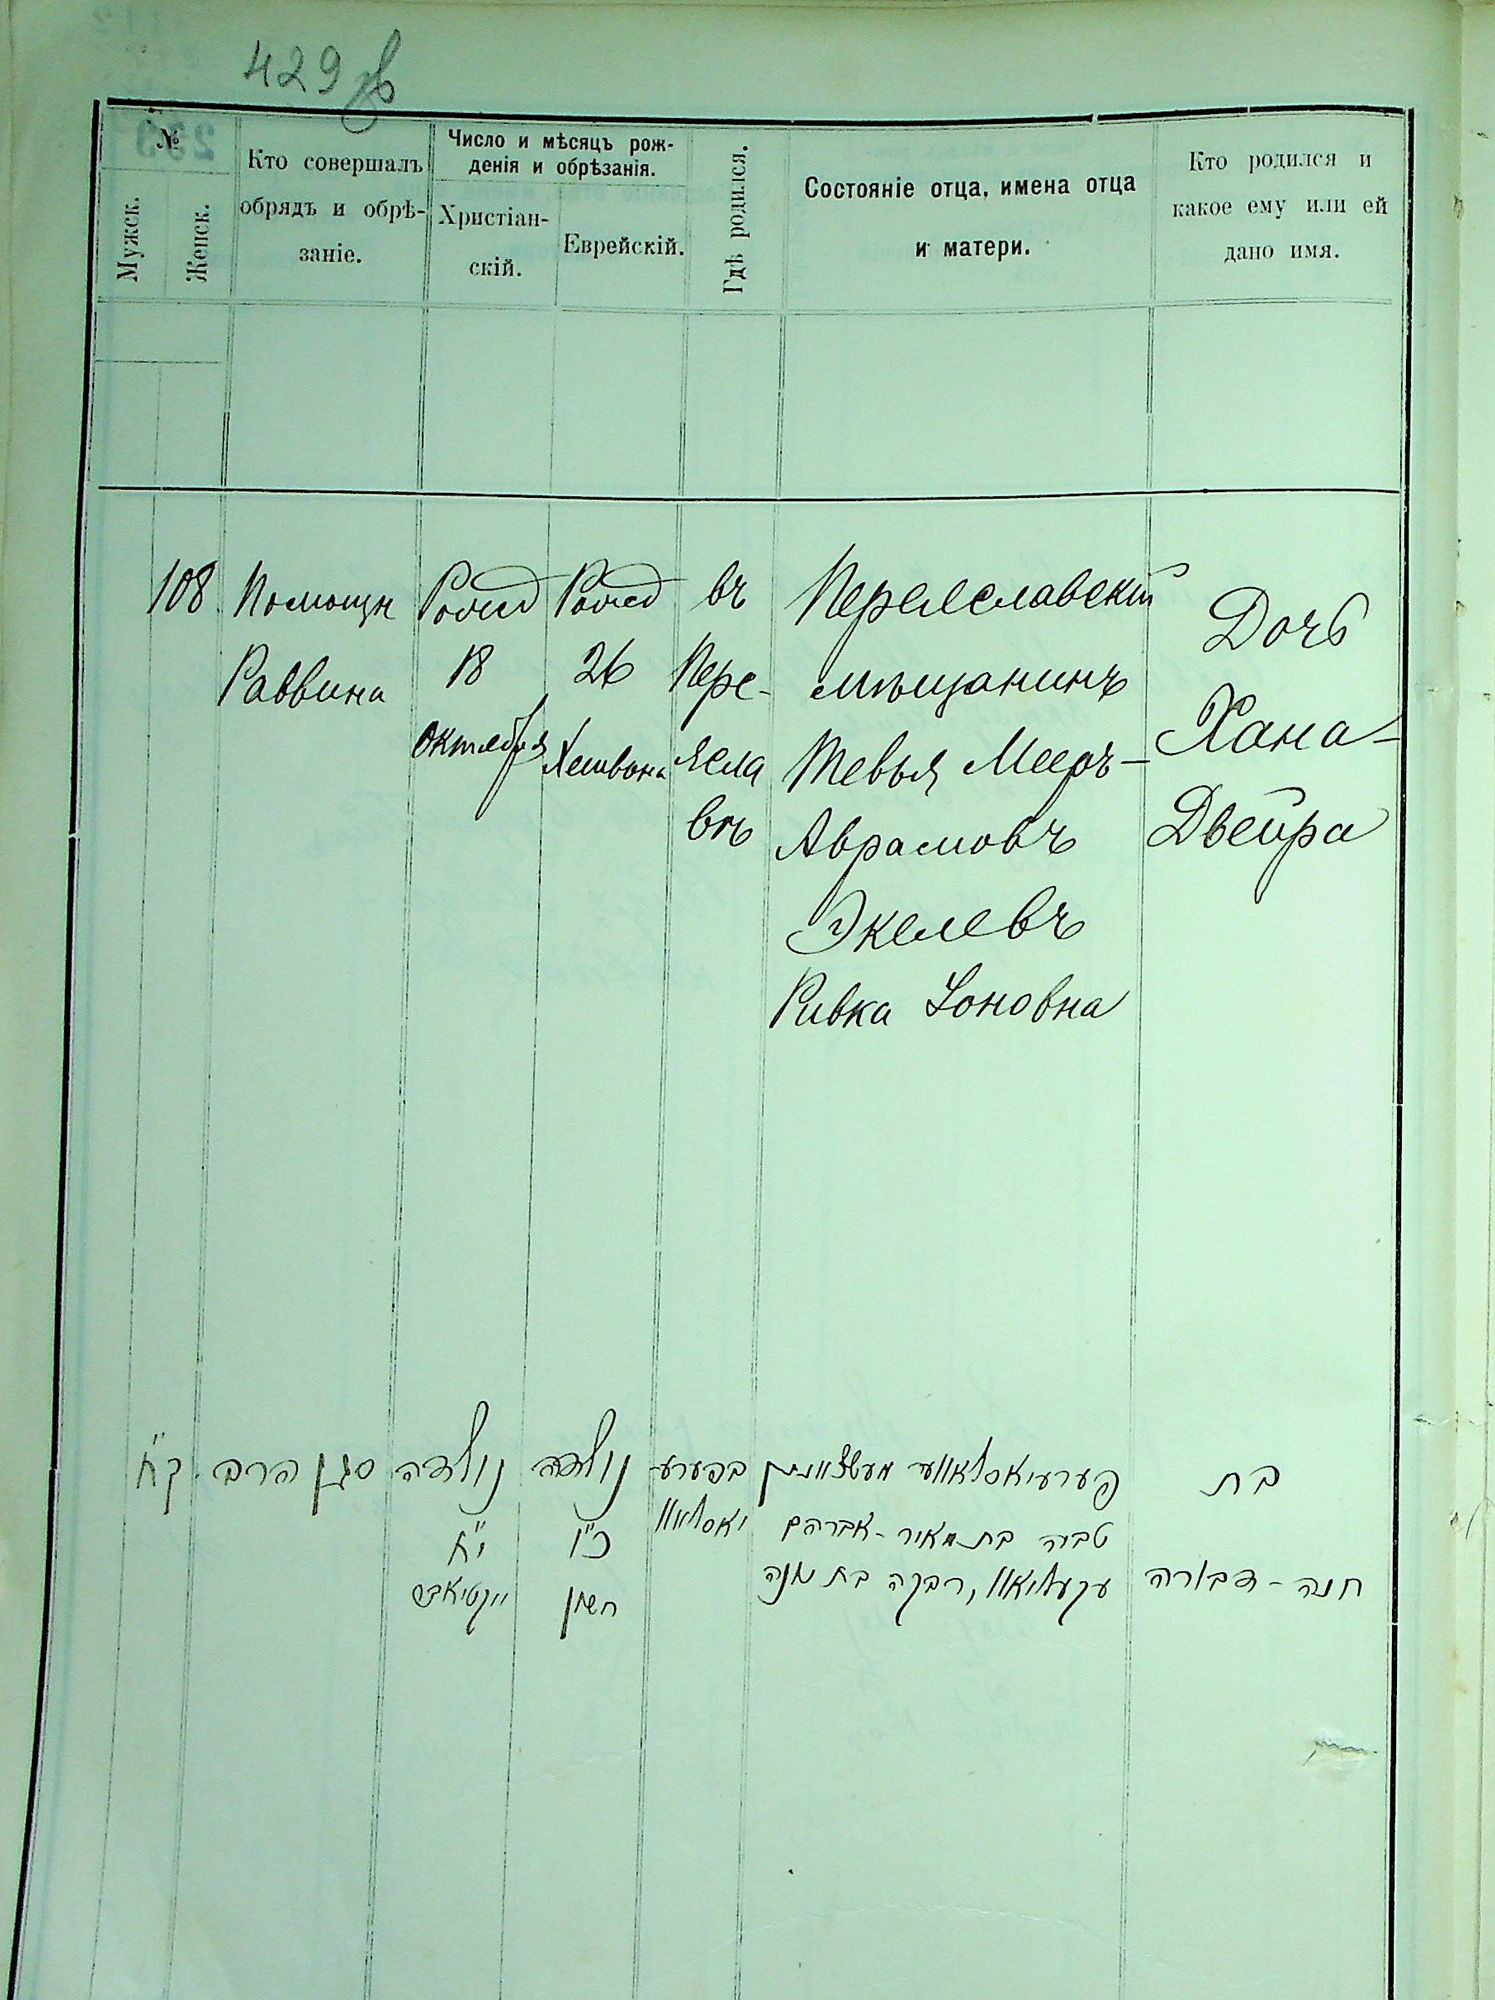 429
№
Мужск.
Женск.
Кто совершалъ
обрядъ и обрѣ-
заніе.
Число и мѣсяцъ рож-
денія и обрѣзанія.
Христіан-
скій.
Еврейскій.
Гдѣ родился.
Состояніе отца, имена отца
и матери.
Кто родился и
какое ему или ей
дано имя.
108
Помощн
Раввина
Рожд
18
октября
Рожд
26
Хешвона
въ
Пере-
ясла
вѣ
Переяславскій
мѣщанинъ
Тевья Мееръ-
Аврамовъ
Экелевъ
Ривка Іоновна
Дочь
Хана-
Двейра
ק״ח
סגן הרב
נולדה
י״ח
נולדה
כ״ו
חשון
בפערע-
יאסלאוו
פערעיאסלאווער מעשצאנין
טביה בת מאיר-אברהם
רבקה בת יונה
בת
חנה-דבורה